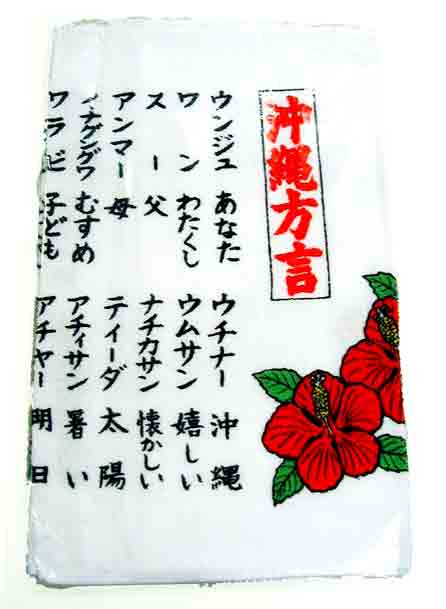 沖縄方言
ウンジュ あなた
ワン わたくし
スー 父
アンマー 母
ナグングワ むすめ
ワラビ 子ども
ウチナー 沖縄
ウムサン 嬉しい
ナチカサン 懐かしい
ティーダ 太陽
アチィサン 暑い
アチャー 明日